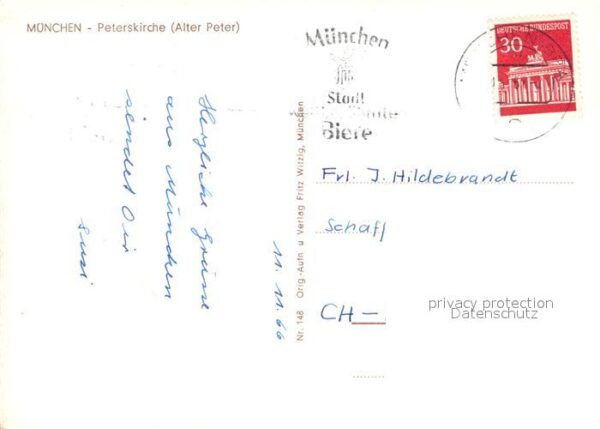 MÜNCHEN - Peterskirche (Alter Peter)
München
Stadt
Biere
DEUTSCHE BUNDESPOST
30
Herzliche Grüsse
aus München
sendet Dir
Susi
11. 11. 66
Nr. 148 Orig.-Aufn u Verlag Fritz Witzig, München
Frl. J. Hildebrandt
Schaff
CH-
privacy protection
Datenschutz